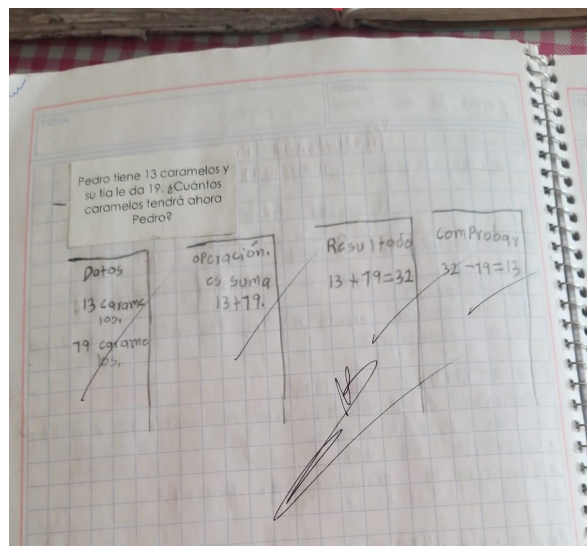 Pedro tiene 13 caramelos y
su tía le da 19. ¿Cuántos
caramelos tendrá ahora
Pedro?
Datos
13 carame
los.
19 carame
los.
operación.
es suma
13+19.
Resultado
13+19=32
comprobar
32-19=13